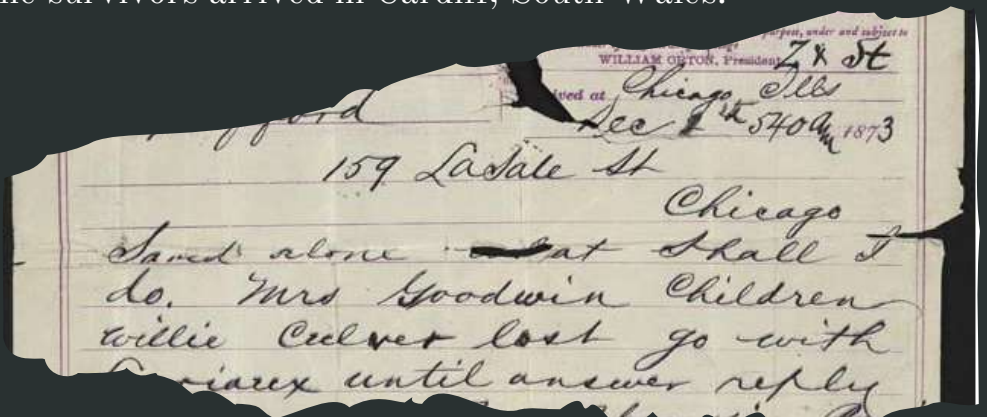 survivors arrived in Cardiff, South Wales.
purpose, under and subject to
WILLIAM ORTON, President
Z x St
ved at Chicago Ills
Dec 540am 1873
159 LaSale St
Chicago
Saved alone at shall I
do. Mrs Goodwin Children
willie Culver lost go with
until answer reply